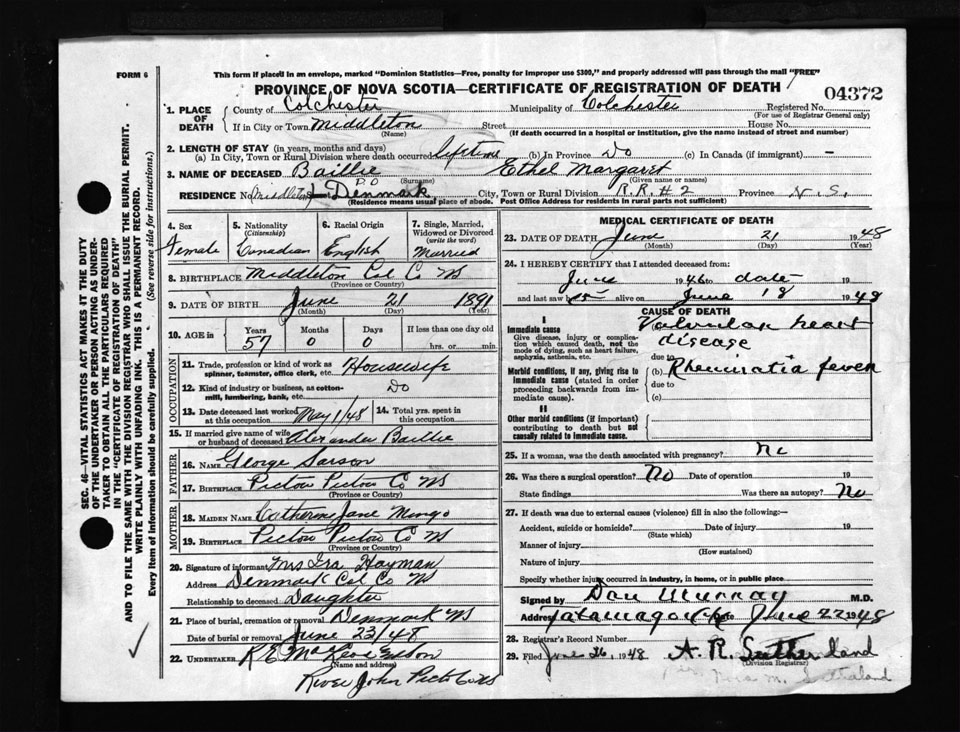 FORM 6
This form if placed in an envelope, marked "Dominion Statistics—Free, penalty for improper use $300," and properly addressed will pass through the mail "FREE"
PROVINCE OF NOVA SCOTIA—CERTIFICATE OF REGISTRATION OF DEATH
04372
1. PLACE OF DEATH
County of Colchester Municipality of Colchester Registered No.
(For use of Registrar General only)
If in City or Town Middleton Street House No.
(Name) (If death occurred in a hospital or institution, give the name instead of street and number)
2. LENGTH OF STAY (in years, months and days)
(a) In City, Town or Rural Division where death occurred lifetime (b) In Province Do (c) In Canada (if immigrant) —
3. NAME OF DECEASED Baillie Ethel Margaret
(Surname) (Given name or names)
RESIDENCE No. Middleton P.O Denmark City, Town or Rural Division R.R. #2 Province N.S.
(Residence means usual place of abode. Post Office Address for residents in rural parts not sufficient)
4. Sex
Female
5. Nationality
(Citizenship)
Canadian
6. Racial Origin
English
7. Single, Married, Widowed or Divorced
(write the word)
Married
8. BIRTHPLACE Middleton Col Co NS
(Province or Country)
9. DATE OF BIRTH June 21 1891
(Month) (Day) (Year)
10. AGE in Years Months Days If less than one day old
57 0 0 hrs. or min.
OCCUPATION
11. Trade, profession or kind of work as spinner, teamster, office clerk, etc. Housewife
12. Kind of industry or business, as cotton-mill, lumbering, bank, etc. Do
13. Date deceased last worked at this occupation May 1/48
14. Total yrs. spent in this occupation
15. If married give name of wife or husband of deceased Alexander Baillie
FATHER
16. Name George Sarson
17. Birthplace Pictou Pictou Co NS
(Province or Country)
MOTHER
18. Maiden Name Catherine Jane Mingo
19. Birthplace Pictou Pictou Co NS
(Province or Country)
20. Signature of informant Mrs Ira Hayman
Address Denmark Col Co NS
Relationship to deceased Daughter
21. Place of burial, cremation or removal Denmark NS
Date of burial or removal June 23/48
22. UNDERTAKER R E
(Name and address)
River John Picto Co NS
MEDICAL CERTIFICATE OF DEATH
23. DATE OF DEATH June 21 1948
(Month) (Day) (Year)
24. I HEREBY CERTIFY that I attended deceased from:
June 1946 to date 19
and last saw h alive on June 18 1948
CAUSE OF DEATH
I
Immediate cause
Give disease, injury or complication which caused death, not the mode of dying, such as heart failure, asphyxia, asthenia, etc.
(a) Valvular heart disease
due to
Morbid conditions, if any, giving rise to immediate cause (stated in order proceeding backwards from immediate cause).
(b) Rheumatic fever
due to
(c)
II
Other morbid conditions (if important) contributing to death but not causally related to immediate cause.
25. If a woman, was the death associated with pregnancy? No
26. Was there a surgical operation? No Date of operation 19
State findings Was there an autopsy? No
27. If death was due to external causes (violence) fill in also the following:—
Accident, suicide or homicide? Date of injury 19
(State which)
Manner of injury
(How sustained)
Nature of injury
Specify whether injury occurred in industry, in home, or in public place
Signed by Dan Murray M.D.
Address Tatamagouche Date June 22 1948
28. Registrar's Record Number
29. Filed June 26, 1948 A. R. Sutherland
(Division Registrar)
per Nora M. Sutherland
SEC. 46—VITAL STATISTICS ACT MAKES IT THE DUTY
OF THE UNDERTAKER OR PERSON ACTING AS UNDER-
TAKER TO OBTAIN ALL THE PARTICULARS REQUIRED
IN THE "CERTIFICATE OF REGISTRATION OF DEATH"
AND TO FILE THE SAME WITH THE DIVISION REGISTRAR WHO SHALL ISSUE THE BURIAL PERMIT.
WRITE PLAINLY WITH UNFADING INK. THIS IS A PERMANENT RECORD.
Every item of information should be carefully supplied. (See reverse side for instructions.)